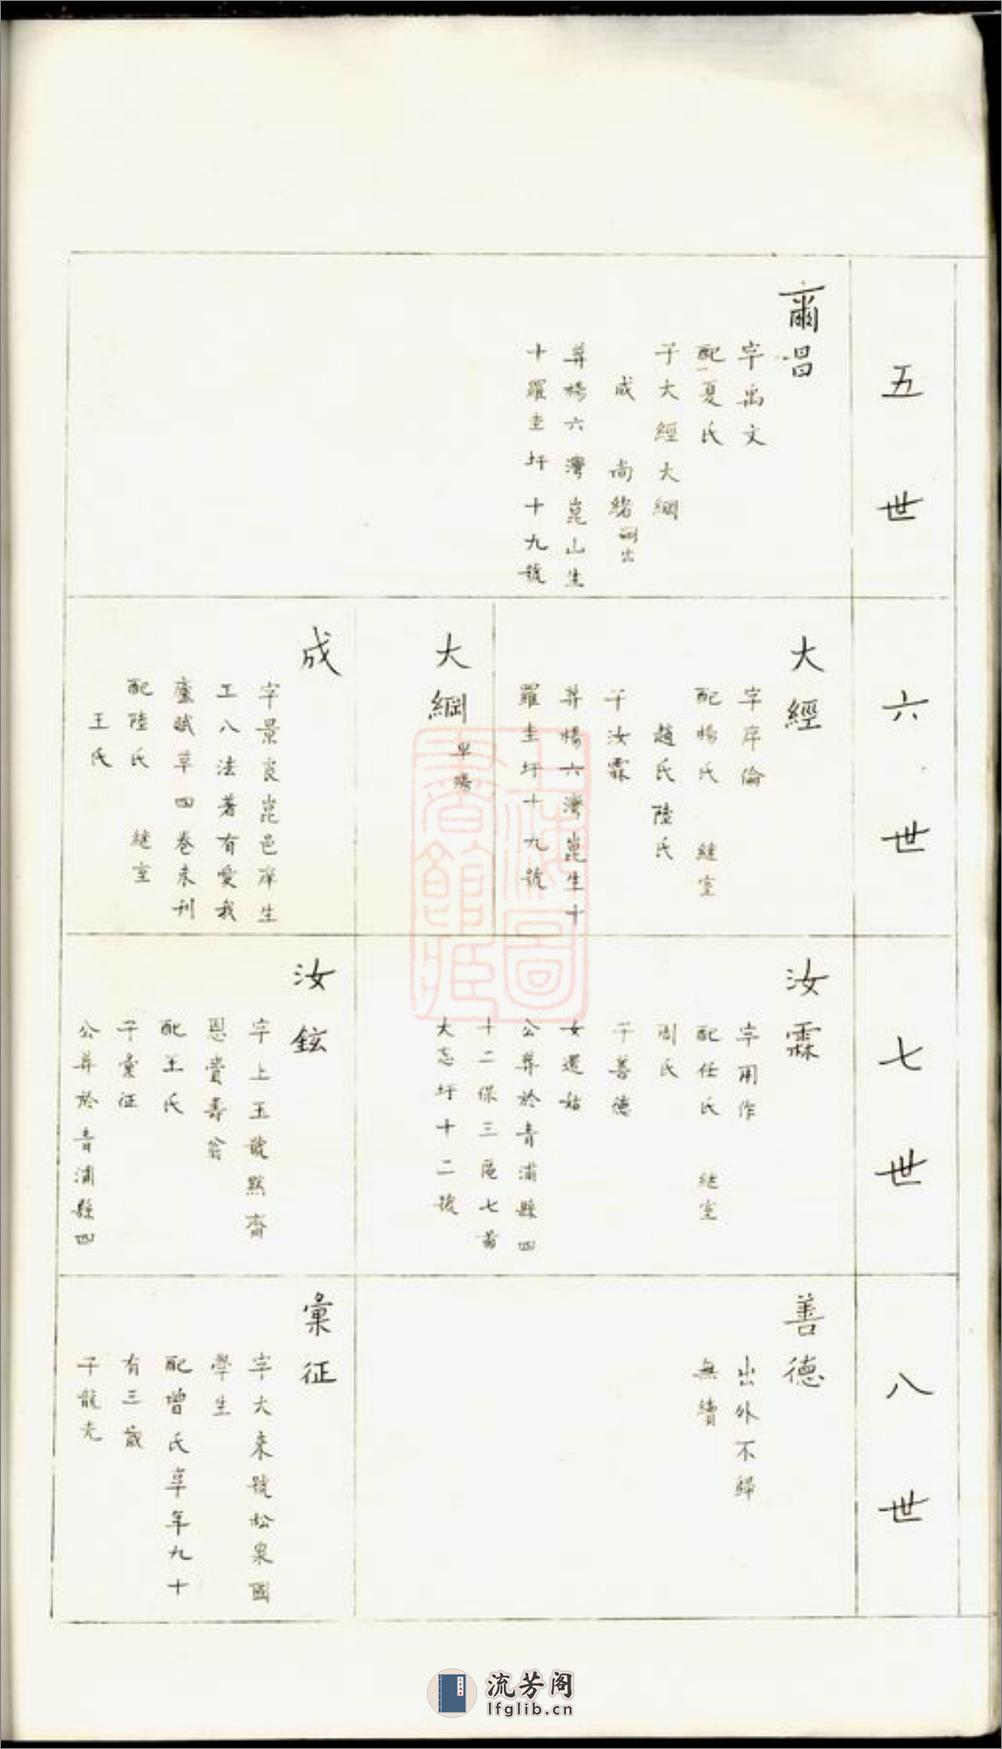 五世
爾昌
字禹文
配夏氏
子大經大綱
成 尚緒嗣出
葬楊六灣崑山生
十羅圭圩十九號
六世
大經
字序倫
配楊氏 繼室
趙氏陸氏
子汝霖
葬楊六灣崑生十
羅圭圩十九號
大綱
早殤
成
字景良崑邑庠生
工八法著有愛我
廬賦草四卷未刊
配陸氏 繼室
王氏
七世
汝霖
字用作
配任氏 繼室
周氏
子善德
女還姑
公葬於青浦縣四
十二保三區七啚
大忘圩十二號
汝鉉
字上玉號默齋
恩賚壽翁
配王氏
子彙征
公葬於青浦縣四
八世
善德
出外不歸
無續
彙征
字大來號松泉國
學生
配增氏享年九十
有三歲
子龍光
上海圖書館藏
流芳阁
lfglib.cn